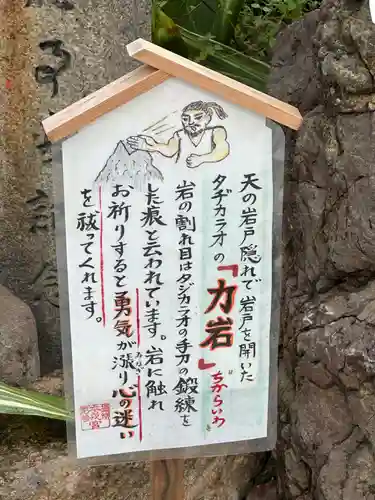 天の岩戸隠れで岩戸を開いた
タヂカラオの「力岩」
ちからいわ
岩の割れ目はタジカラオの手刀の鍛練を
した痕と云われています。岩に触れ
お祈りすると勇気が漲り心の迷い
みなぎ
を祓ってくれます